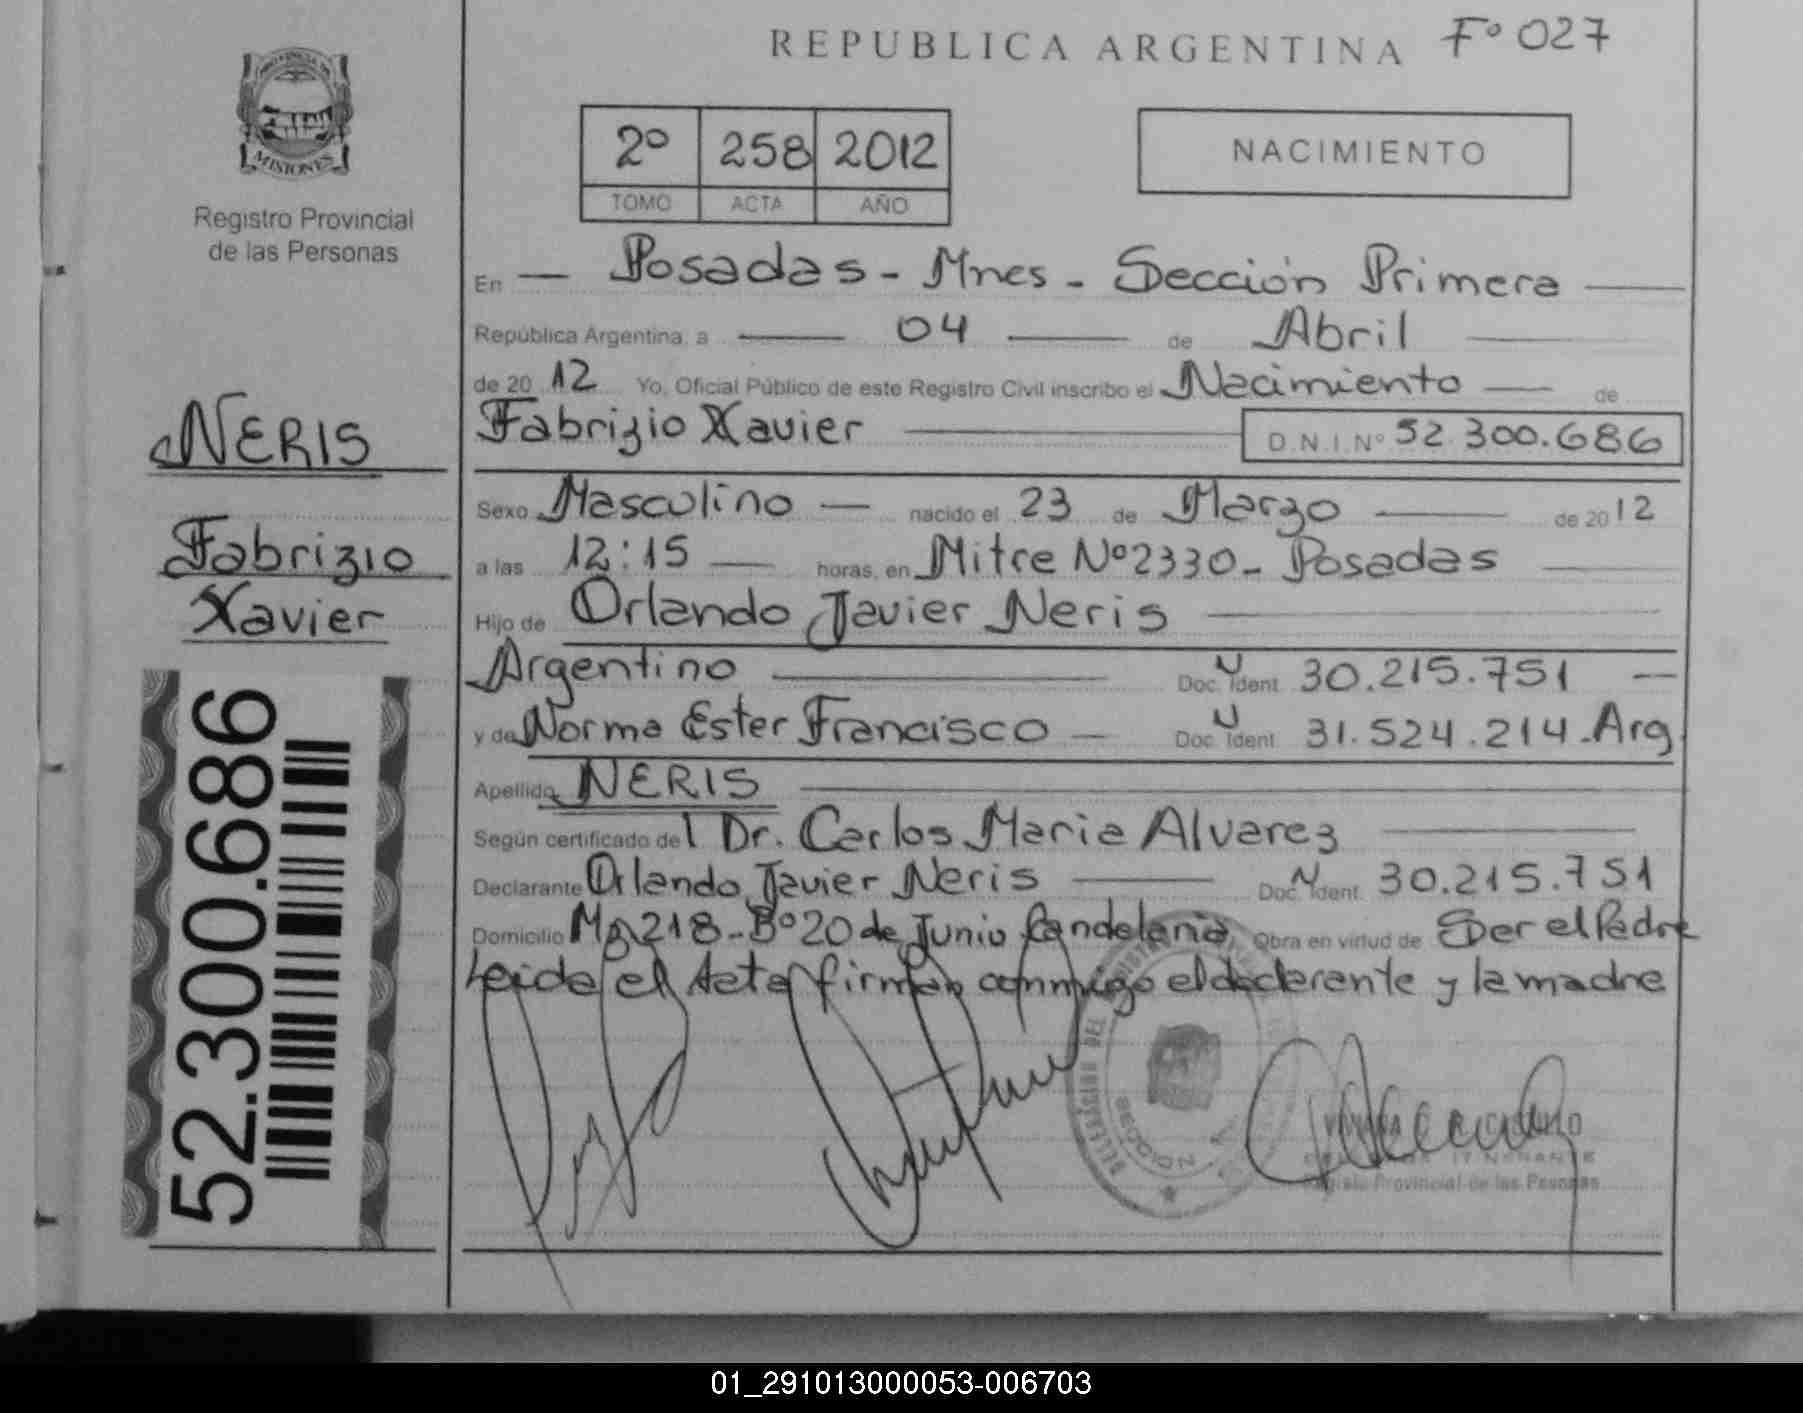 REPUBLICA ARGENTINA Fº 027
MISIONES
Registro Provincial
de las Personas
2º 258 2012
TOMO ACTA AÑO
NACIMIENTO
En Posadas - Mnes - Sección Primera
República Argentina, a 04 de Abril
de 20 12 Yo, Oficial Público de este Registro Civil inscribo el Nacimiento de
Fabrizio Xavier D.N.I.Nº 52.300.686
NERIS
Fabrizio
Xavier
52.300.686
Sexo Masculino nacido el 23 de Marzo de 2012
a las 12:15 horas, en Mitre Nº 2330 - Posadas
Hijo de Orlando Javier Neris
Argentino Doc. N Ident. 30.215.751
y de Norma Ester Francisco Doc. N Ident. 31.524.214 - Arg
Apellido NERIS
Según certificado del Dr. Carlos Maria Alvarez
Declarante Orlando Javier Neris Doc. N Ident. 30.215.751
Domicilio Mz 218 - Bº 20 de Junio Candelaria Obra en virtud de Ser el Padre
Leida el Acta firman conmigo el declarante y la madre
Registro Provincial de las Personas
01_291013000053-006703